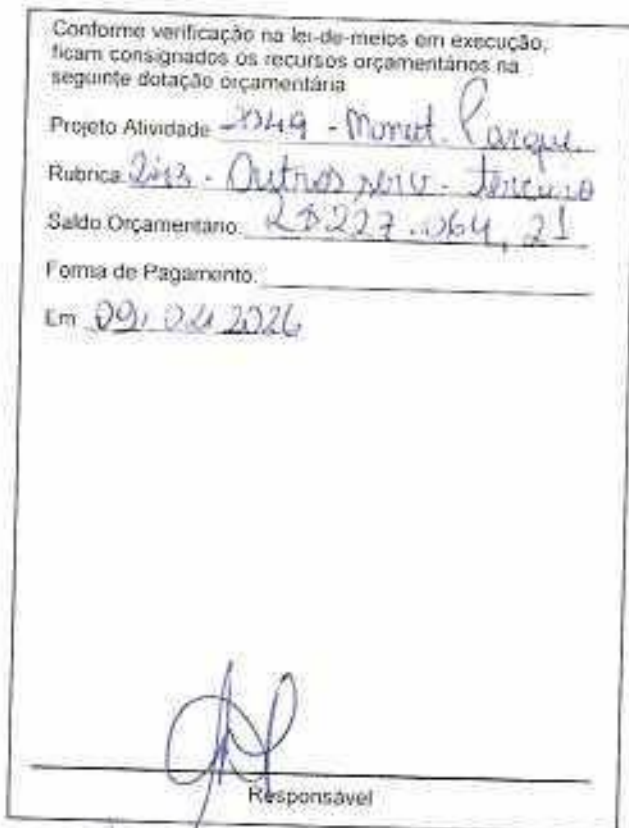 Conforme verificação na lei-de-meios em execução,
ficam consignados os recursos orçamentários na
seguinte dotação orçamentária
Projeto Atividade 2049 - Manut. Parque
Rubrica - Outros serv. terceiro
Saldo Orçamentário: 227.064,21
Forma de Pagamento:
Em 09/02/2026
Responsável